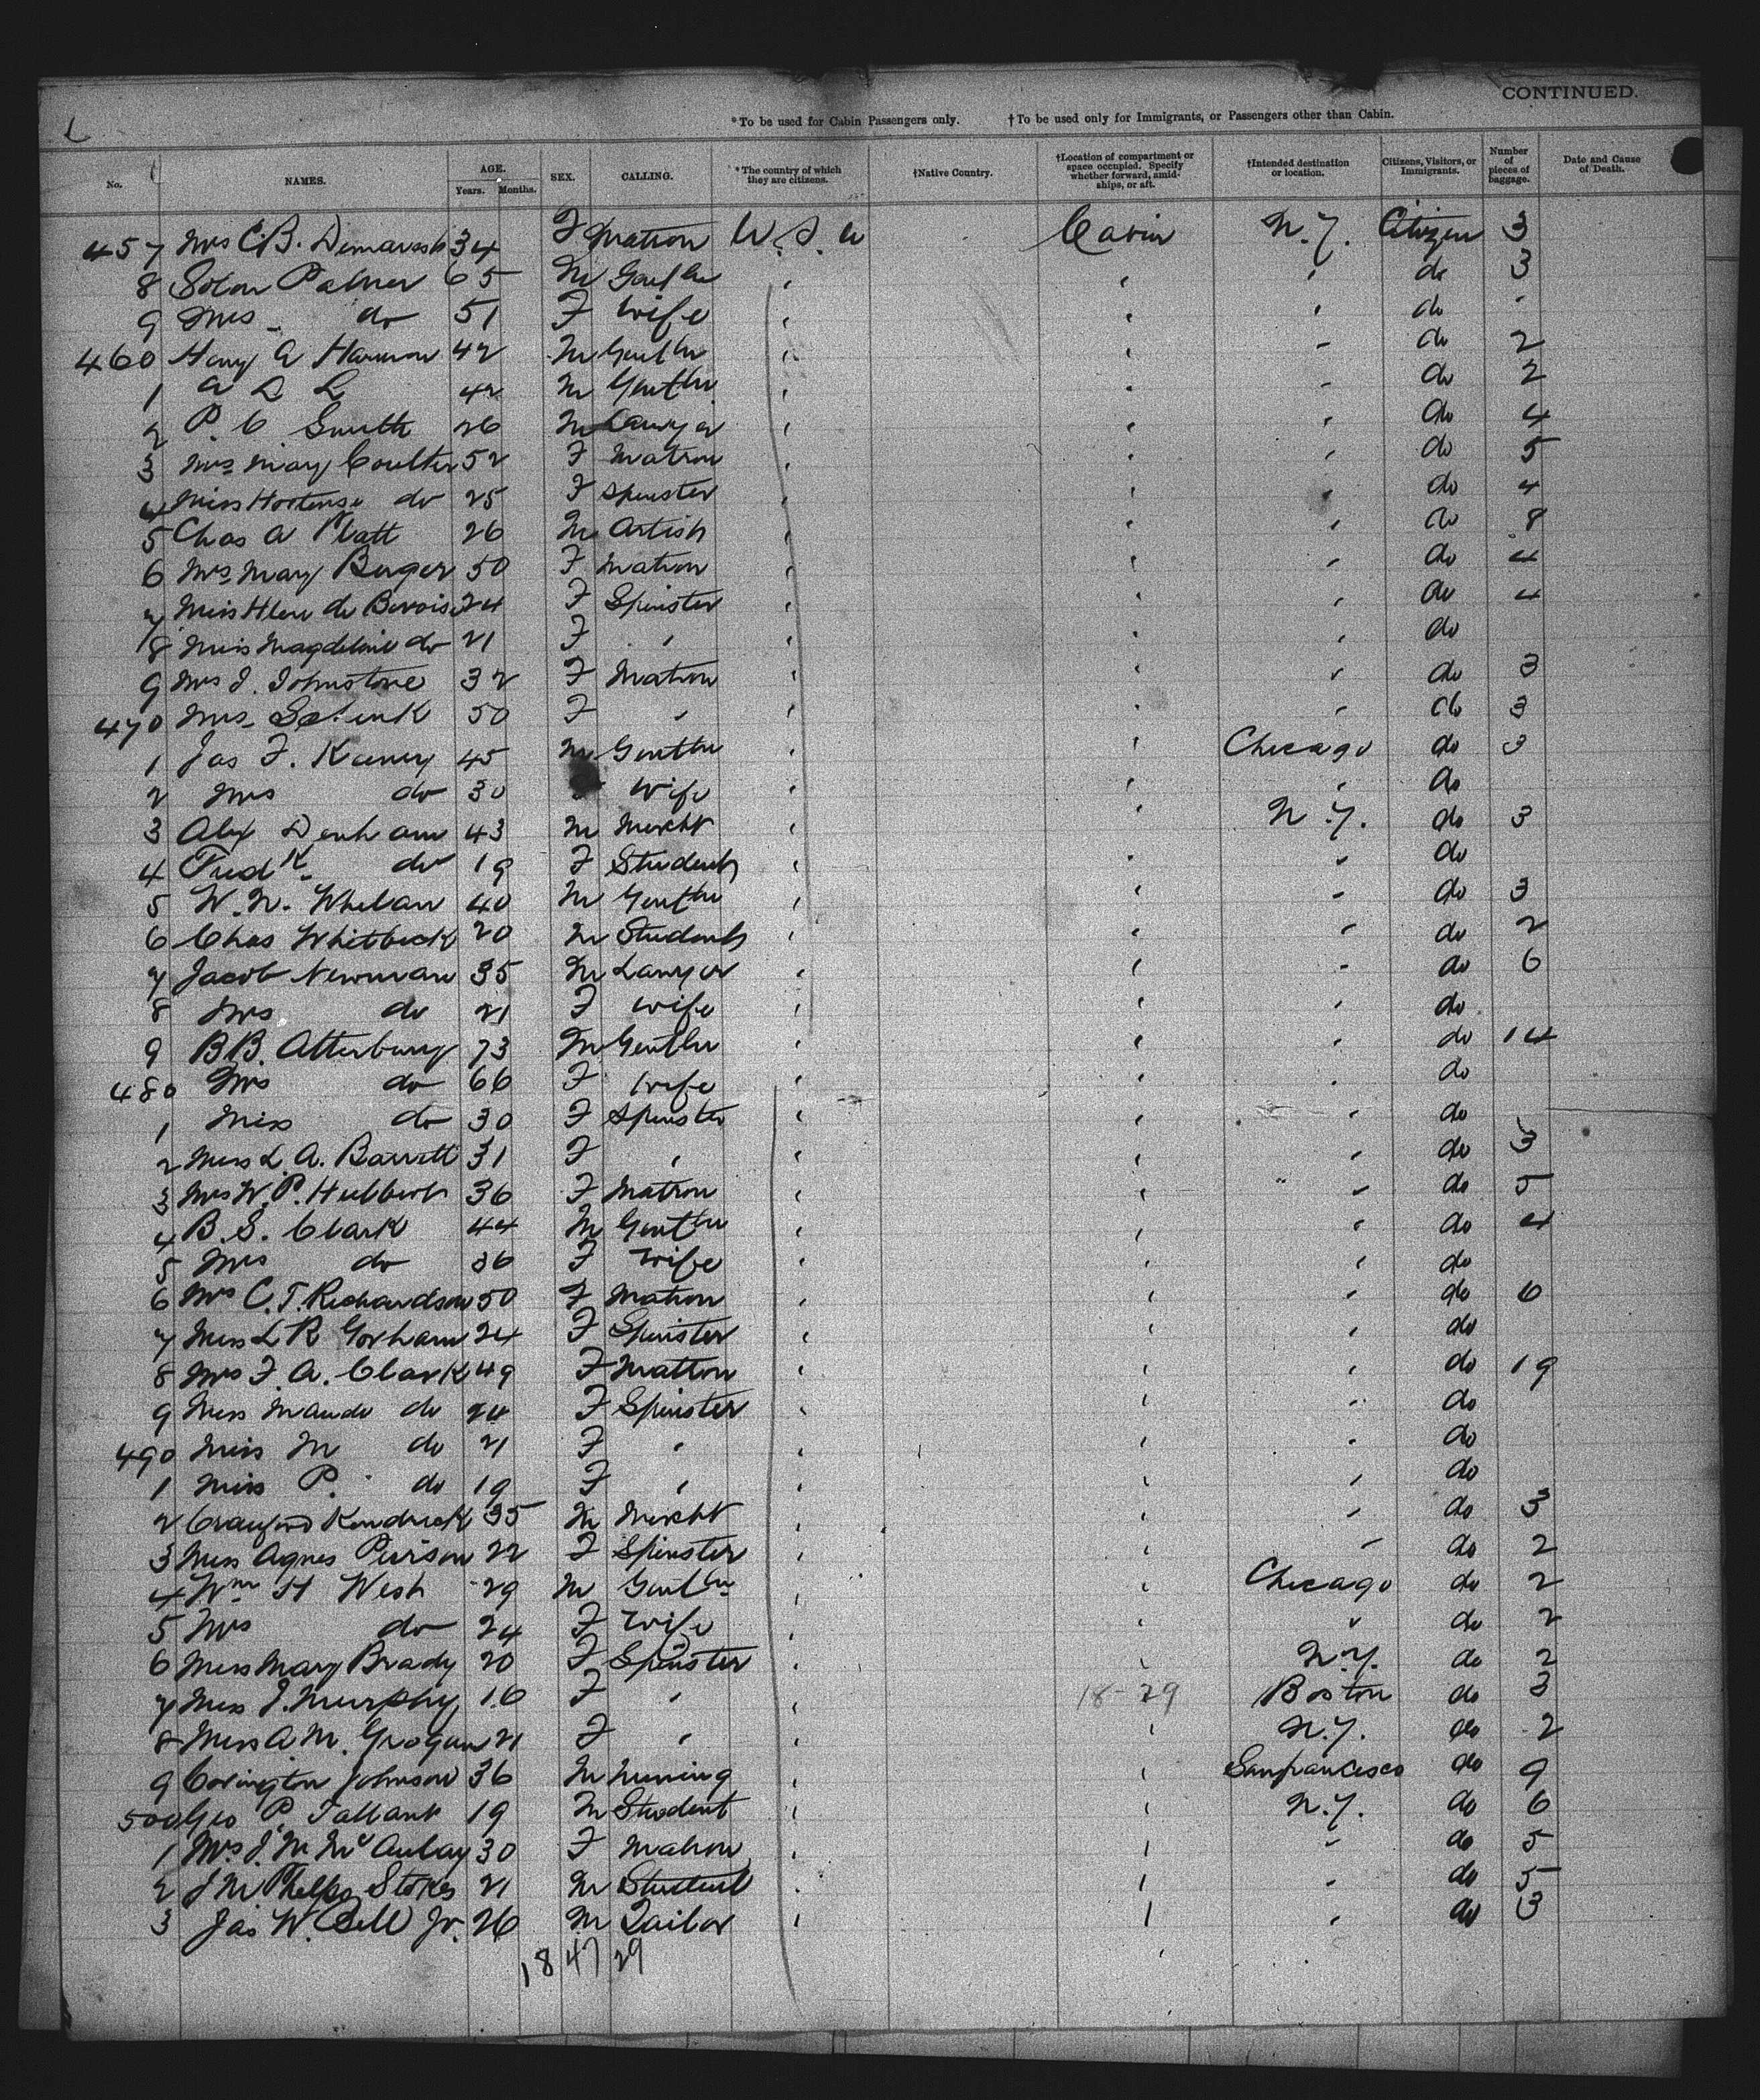 CONTINUED.
*To be used for Cabin Passengers only. †To be used only for Immigrants, or Passengers other than Cabin.
No. NAMES. AGE. Years. Months. SEX. CALLING. *The country of which they are citizens. †Native Country. †Location of compartment or space occupied. Specify whether forward, amidships, or aft. †Intended destination or location. Citizens, Visitors, or Immigrants. Number of pieces of baggage. Date and Cause of Death.
457 Mrs C.B. Demarest 34 F Matron U.S.A Cabin N.Y. Citizen 3
8 Solon Palmer 65 M Gentln " " " do 3
9 Mrs do 51 F Wife " " " do "
460 Harry A 42 M Gentln " " " do 2
1 A D L 42 M Gentln " " " do 2
2 P. C Smith 26 M Lawyer " " " do 4
3 Mrs Mary Coulter 52 F Matron " " " do 5
4 Miss Hortense do 25 F Spinster " " " do 4
5 Chas A Platt 26 M Artist " " " do 8
6 Mrs Mary Berger 50 F Matron " " " do 4
7 Miss de 24 F Spinster " " " do 4
8 Miss Magdeline do 21 F " " " " do
9 Mrs J. Johnstone 32 F Matron " " " do 3
470 Mrs Schenk 50 F " " " " do 3
1 Jas F. 45 M Gentln " " Chicago do 3
2 Mrs do 30 Wife " " " do
3 Alex Denham 43 M Mercht " " N.Y. do 3
4 Fredk do 19 F Student " " " do
5 W.N. Whelan 40 M Gentln " " " do 3
6 Chas Whitbeck 20 M Student " " " do 2
7 Jacob Newman 35 M Lawyer " " " do 6
8 Mrs do 21 F Wife " " " do
9 B.B. Atterbury 73 M Gentln " " " do 14
480 Mrs do 66 F Wife " " " do
1 Miss do 30 F Spinster " " " do
2 Miss L.A. Barrett 31 F " " " " do 3
3 Mrs W.P. Hulbert 36 F Matron " " " do 5
4 B.S. Clark 44 M Gentln " " " do 4
5 Mrs do 36 F Wife " " " do
6 Mrs C.T. Richardson 50 F Matron " " " do 6
7 Miss L R Gorham 24 F Spinster " " " do
8 Mrs F.A. Clark 49 F Matron " " " do 19
9 Miss Maude do 24 F Spinster " " " do
490 Miss M do 21 F " " " " do
1 Miss P. do 19 F " " " " do
2 Crauford Kendrick 35 M Mercht " " " do 3
3 Miss Agnes Pierson 22 F Spinster " " " do 2
4 Wm H West 29 M Gentln " " Chicago do 2
5 Mrs do 24 F Wife " " " do 2
6 Miss Mary Brady 20 F Spinster " " N.Y. do 2
7 Miss J. Murphy 16 F " " 18-29 Boston do 3
8 Miss A.M. Grogan 21 F " " " N.Y. do 2
9 Covington Johnson 36 M Mining " " Sanfrancisco do 9
500 Geo P. Tallant 19 M Student " " N.Y. do 6
1 Mrs J.M McAulay 30 F Matron " " " do 5
2 J M Phelps Stokes 21 M Student " " " do 5
3 Jas W. Bell Jr. 26 M Tailor " " " do 3
18 47 29